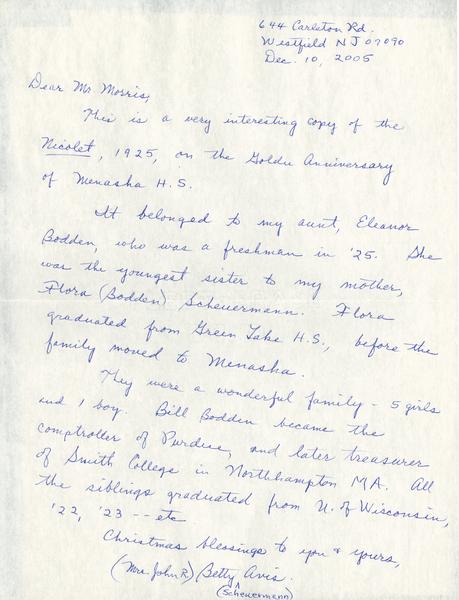 644 Carleton Rd.
Westfield NJ 07090
Dec. 10, 2005
Dear Mr. Morris,
This is a very interesting copy of the
Nicolet, 1925, on the Goldn Anniversary
of Menasha H.S.
It belonged to my aunt, Eleanor
Bodden, who was a freshman in '25. She
was the youngest sister to my mother,
Flora (Bodden) Scheuermann. Flora
graduated from Green Lake H.S., before the
family moved to Menasha.
They were a wonderful family - 5 girls
and 1 boy. Bill Bodden became the
comptroller of Purdue, and later treasurer
of Smith College in Northhampton MA. All
the siblings graduated from U. of Wisconsin,
'22, '23 -- etc
Christmas blessings to you & yours,
(Mrs. John R.) Betty Avis.
(Scheuermann)